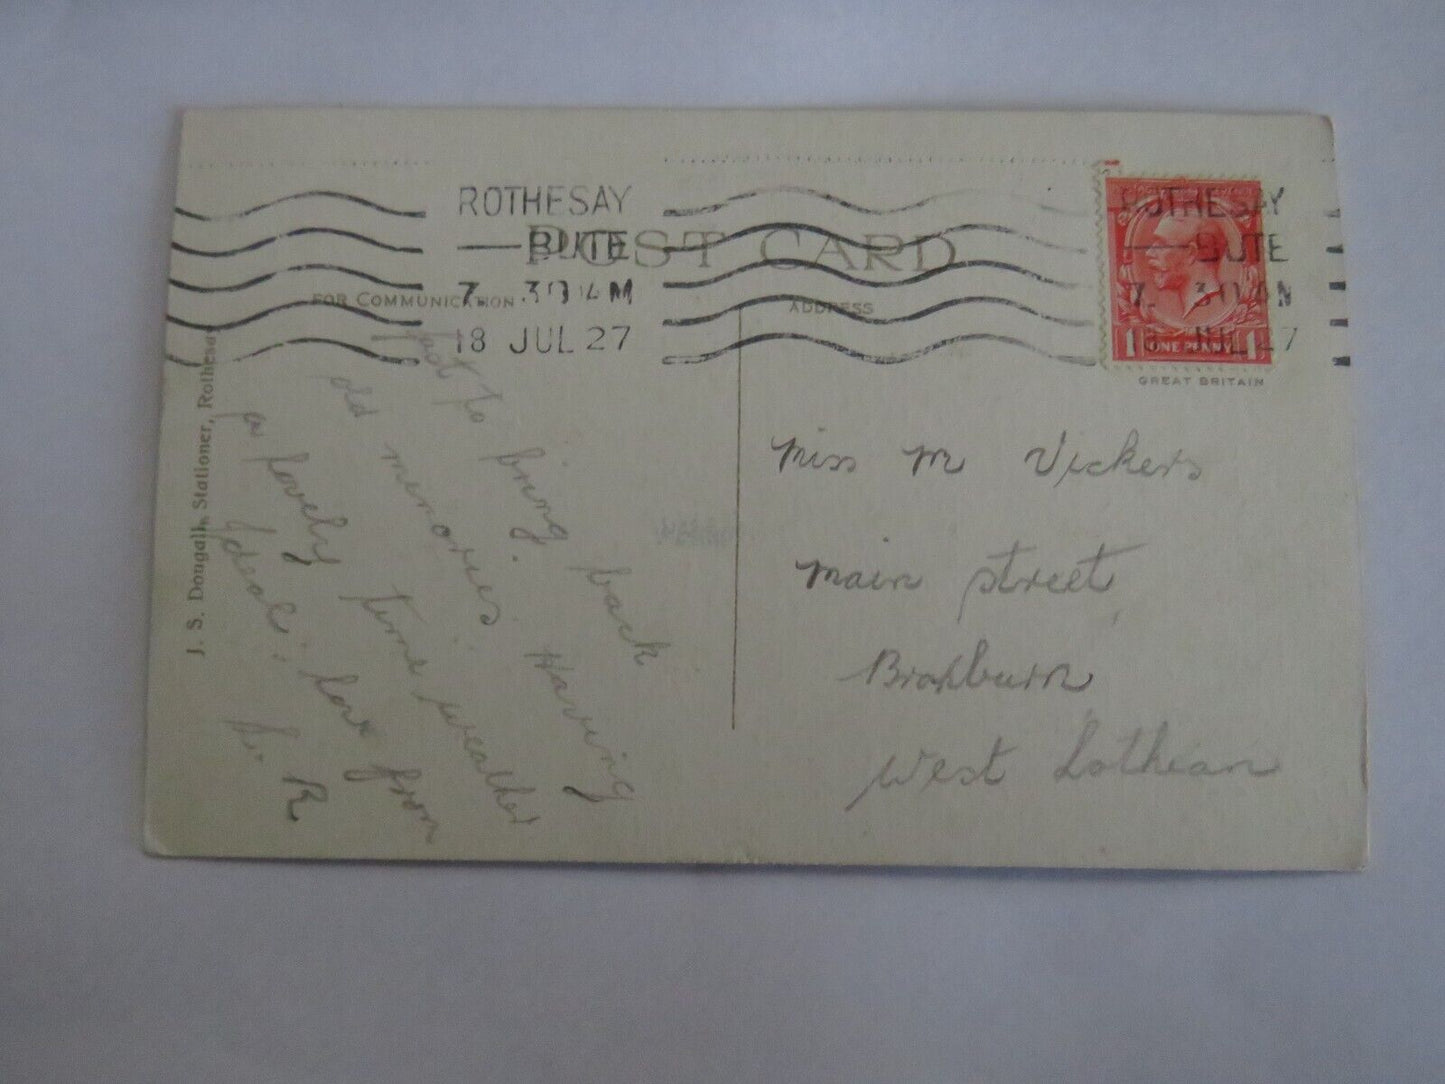 ROTHESAY
BUTE
7. 30 AM
18 JUL 27
POST CARD
FOR COMMUNICATION
ADDRESS
ROTHESAY
BUTE
7. 30 AM
18 JUL 27
1 ONE PENNY 1
GREAT BRITAIN
J. S. Dougall, Stationer, Rothesay
Just to bring back
old memories. Having
a lovely time weather
ideal. love from
R
Miss M Vickers
Main Street
Broxburn
West Lothian